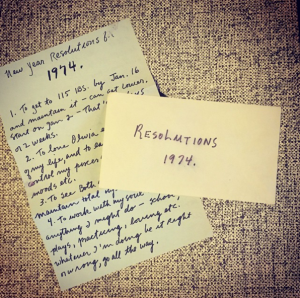 New Year Resolutions for
1974.
1. To get to 115 lbs. by Jan. 16
and maintain it - can get lower.
start on Jan 2 - That gives
2 weeks.
2. To love
of my life, and to
control my
moods etc.
3. To see Beth
maintain total
4. To work with my voice
anything I might do -
plays, practicing, loving etc.
whatever I'm doing be it right
or wrong, go all the way.
RESOLUTIONS
1974.